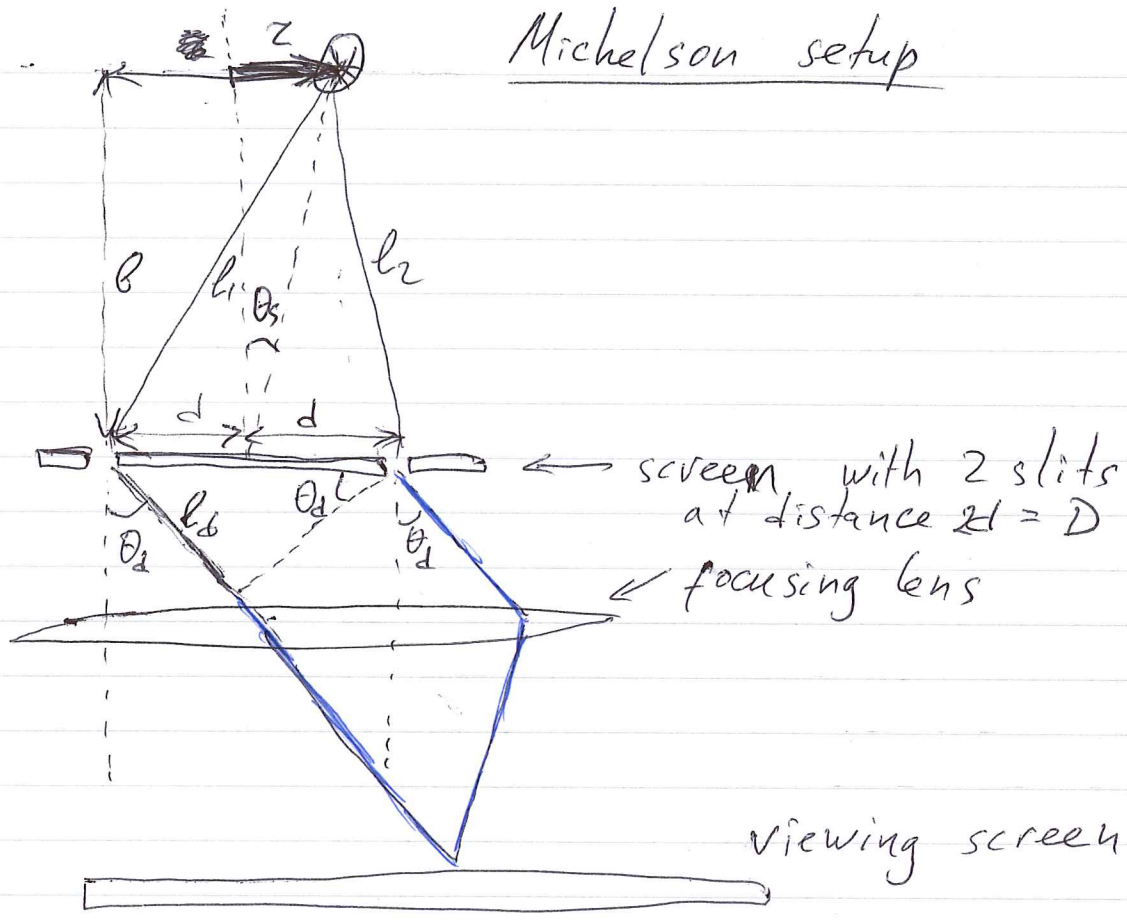 Michelson setup
z
b
l₁
l₂
θs
d
d
screen with 2 slits
at distance 2d = D
θd
ld
θd
θd
focusing lens
viewing screen